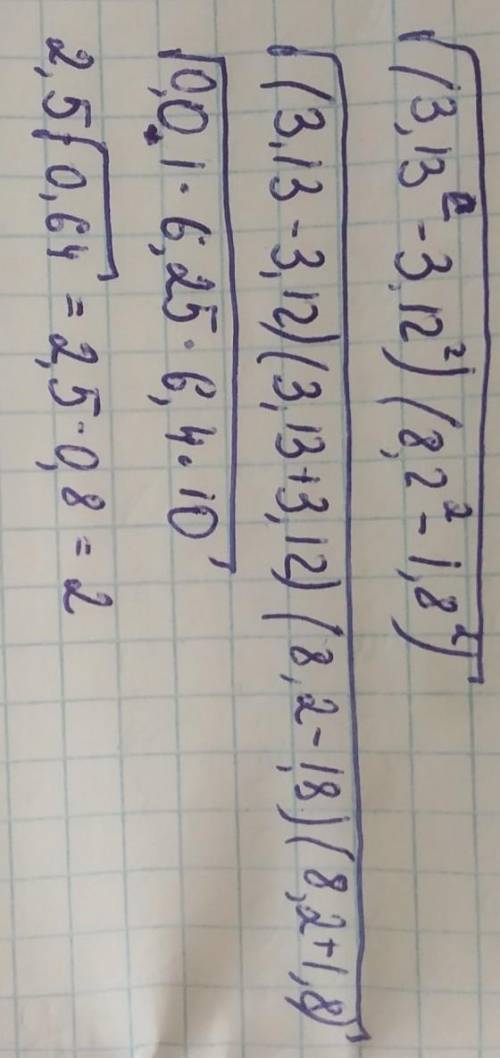 √(3,13² - 3,12²)(8,2² - 1,8²)
√(3,13 - 3,12)(3,13 + 3,12)(8,2 - 1,8)(8,2 + 1,8)
√0,01 · 6,25 · 6,4 · 10
2,5√0,64 = 2,5 · 0,8 = 2